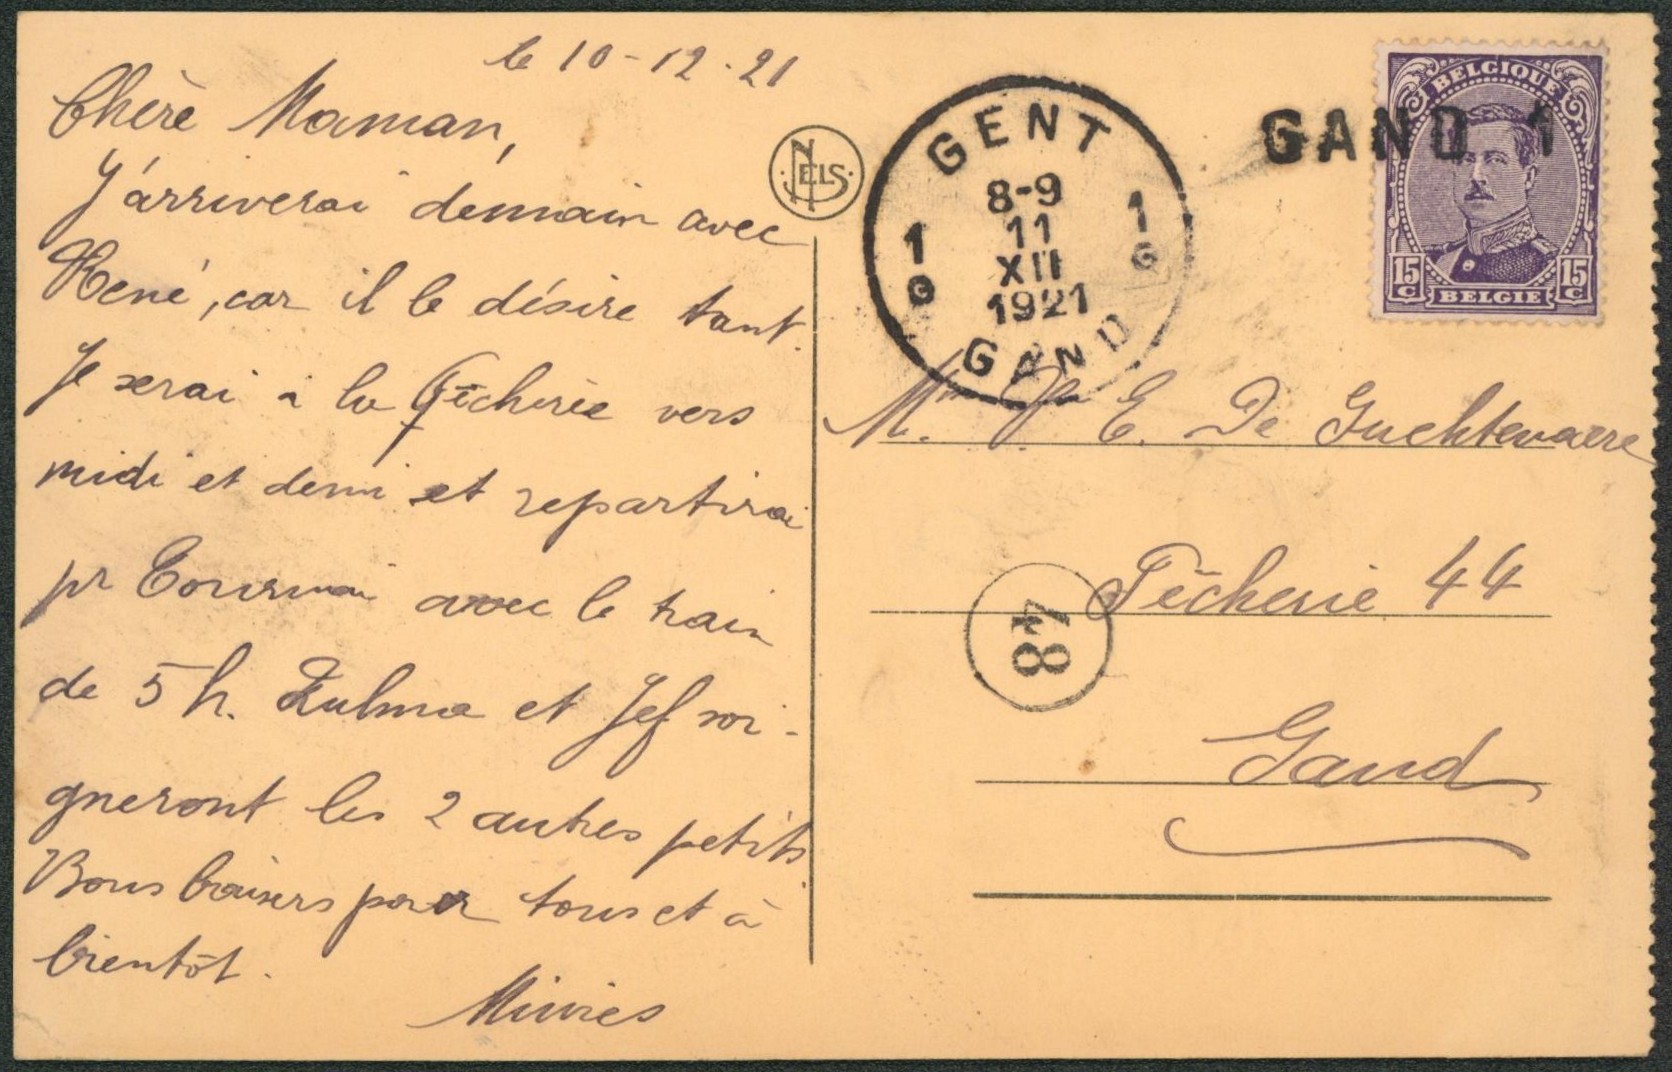 le 10-12-21
Chère Maman,
J'arriverai demain avec
René, car il le désire tant.
Je serai à la Pêcherie vers
midi et demi et repartirai
pr Tournai avec le train
de 5 h. Zulma et Jef soi-
gneront les 2 autres petits
Bons baisers pour tous et à
bientôt.
NELS
GENT
1 1
8-9
11
XII
1921
G G
GAND
GAND 1
BELGIQUE
15 C 15 C
BELGIE
E. De Guchtenaere
Pêcherie 44
48
Gand